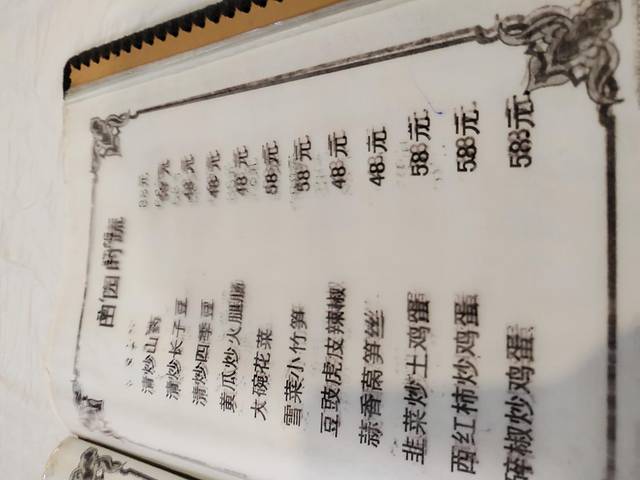 清炒山药 元
清炒长子豆 48元
清炒四季豆 48元
黄瓜炒火腿肠 48元
大碗花菜 58元
雪菜小竹笋 58元
豆豉虎皮辣椒 48元
蒜香莴笋丝 48元
韭菜炒土鸡蛋 58元
西红柿炒鸡蛋 58元
碎椒炒鸡蛋 58元